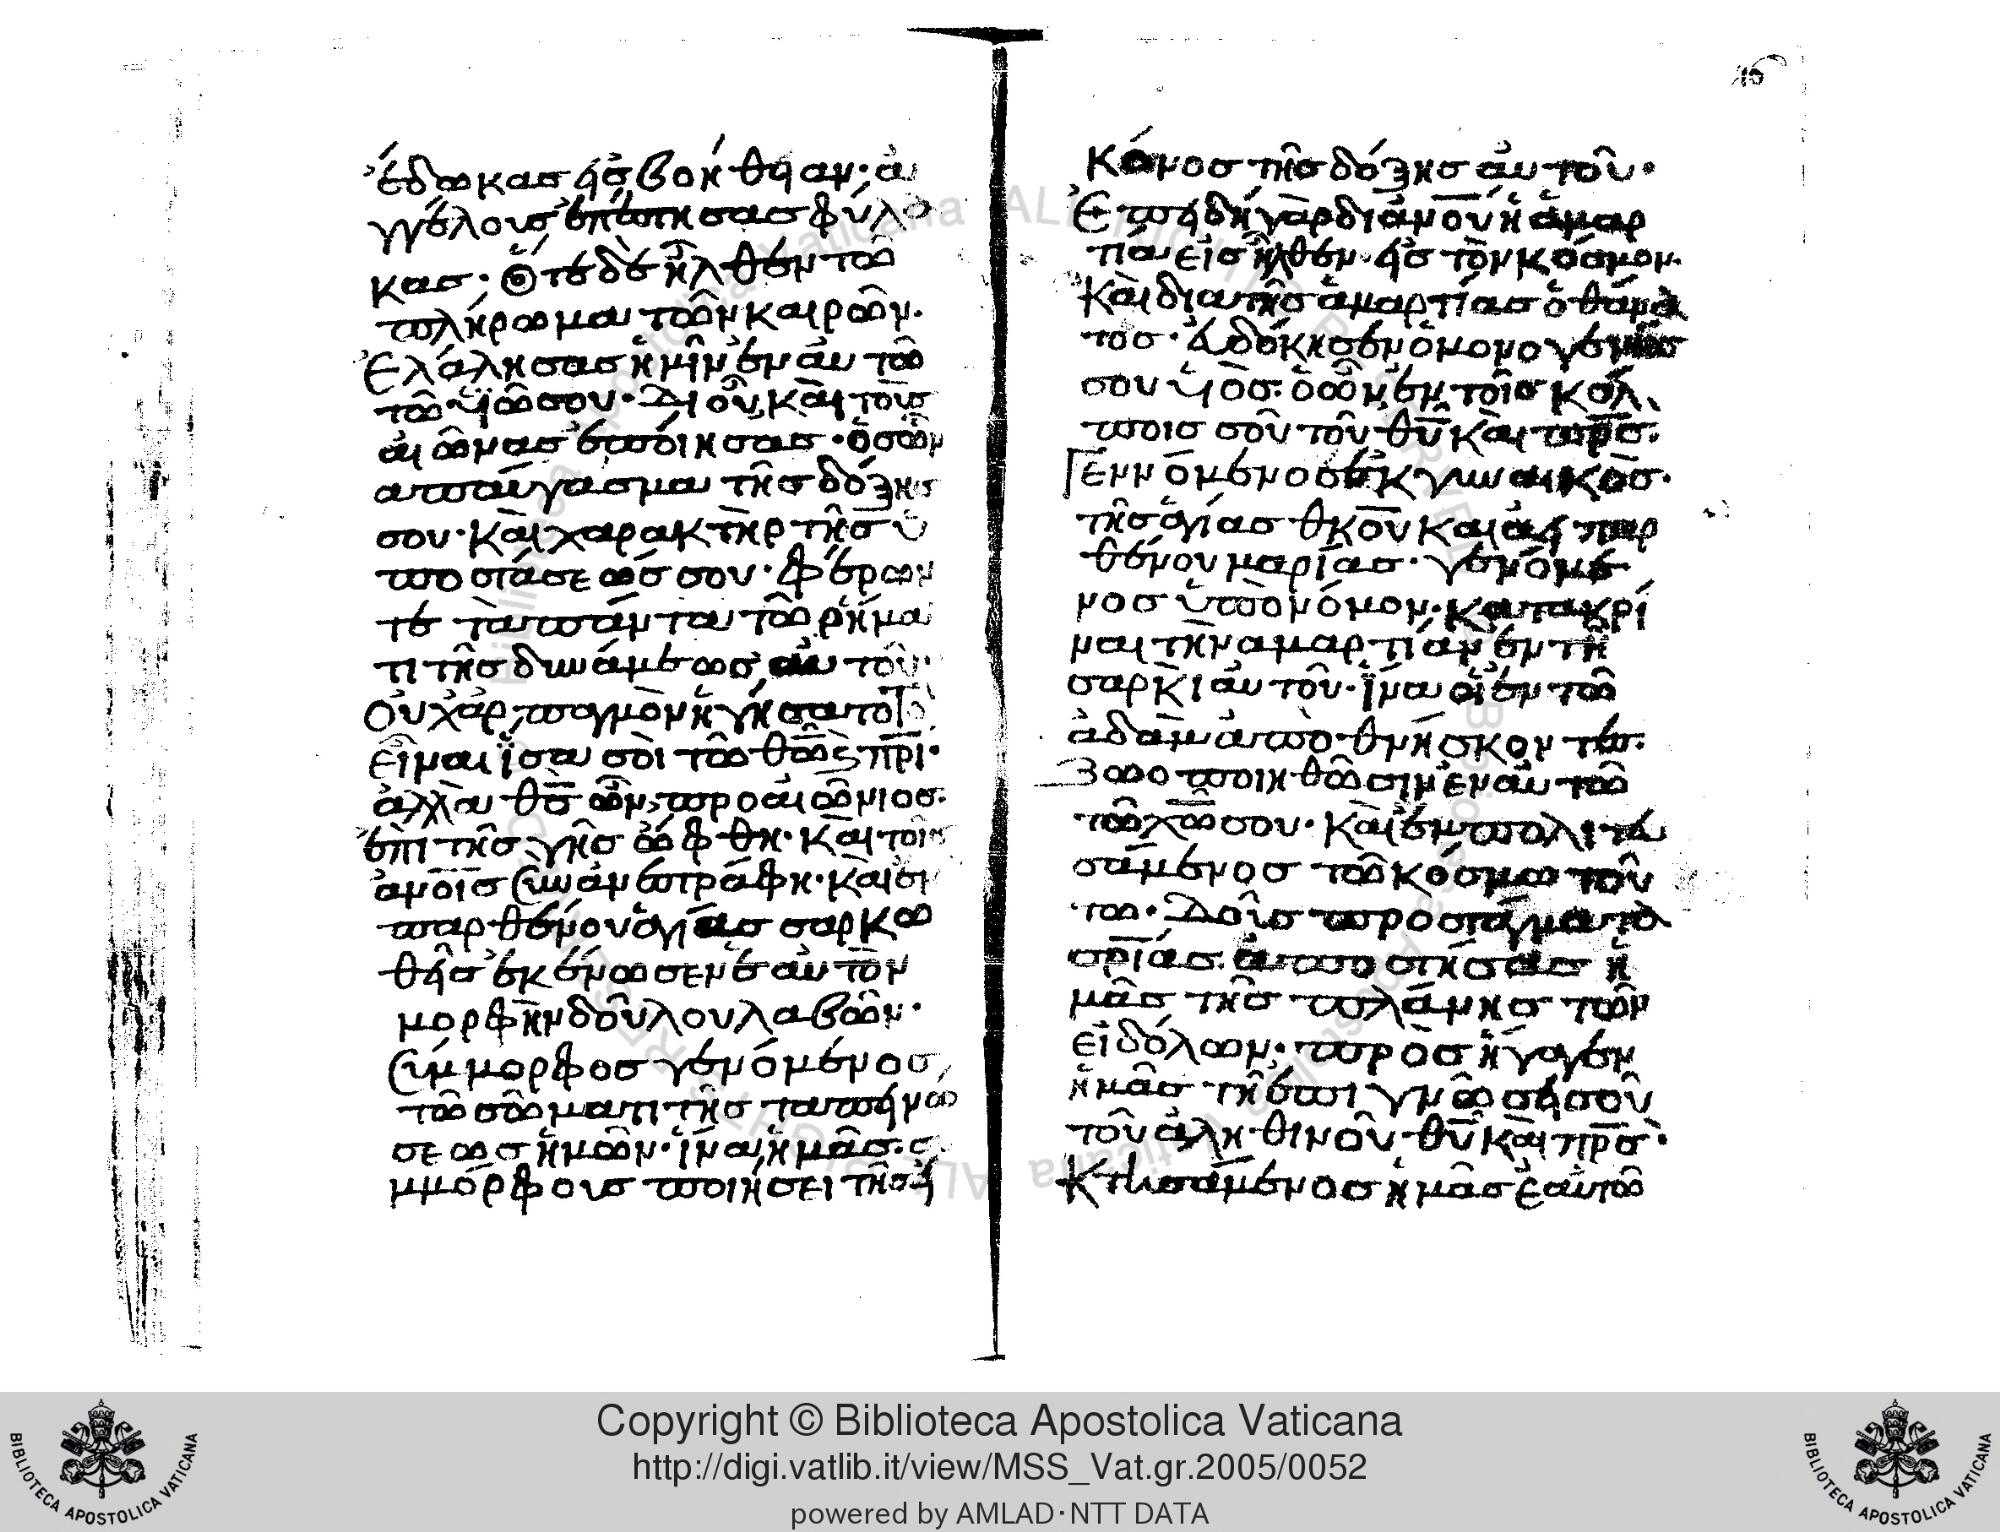 ἔδωκας εἰς βοήθηαν· ἀ
γγέλους ἐπέστησας φύλα
κας· Ὅτε δὲ ἦλθεν τῶ
πλήρωμα τῶν καιρῶν.
Ἐλάλησας ἡμῖν ἐν αὐτῶ
τῶ υἱῶ σου· Δι οὗ καὶ τοὺς
αἰῶνας ἐποίησας· ὃς ὢν
ἀπαύγασμα τῆς δόξης
σου· καὶ χαρακτὴρ τῆς ὑ
ποστάσεώς σου· φέρων
τε τὰ πάντα τῶ ρήμα
τι τῆς δυνάμεως αὐτοῦ·
Οὐχ ἁρπαγμὸν ἡγήσατο
εἶναι ἴσα σοὶ τῶ θῶ καὶ πρί·
ἀλλὰ θς ὢν προαιώνιος.
ἐπὶ τῆς γῆς ὤφθη· καὶ τοῖς
ανοῖς συνανεστράφη· καὶ ἐκ
παρθένου ἁγίας σαρκω
θεὶς ἐκένωσεν ἑαυτὸν
μορφὴν δούλου λαβών·
Σύμμορφος γενόμενος
τῶ σώματι τῆς ταπεινώ
σεως ἡμῶν· ἵνα ἡμᾶς σ
μμόρφους ποιήσει τῆς εἰ
κόνος τῆς δόξης αὐτοῦ·
Ἐπειδὴ γὰρ δι ἀνοῦ ἡ ἁμαρ
τία εἰσῆλθεν εἰς τὸν κόσμον.
Καὶ δια τῆς ἁμαρτίας ὁ θάνα
τος· ηὐδόκησεν ὁ μονογενής
σου υἱὸς· ὁ ὢν ἐν τοῖς κόλ
ποις σοῦ τοῦ θυ καὶ προς.
Γεννόμενος ἐκ γυναικὸς.
τῆς ἁγίας θκου καὶ ἀει παρ
θένου μαρίας· γενόμε
νος ὑπὸ νόμον· κατακρί
ναι τὴν αμαρτίαν ἐν τῆ
σαρκὶ αὐτοῦ· ἵνα οἱ ἐν τῶ
ἀδὰμ ἀπὸ θνήσκοντες.
Ζωοποιηθῶσιν ἐν αὐτῶ
τῶ χῶ σου· καὶ ἐνπολιτευ
σάμενος τῶ κόσμω τού
τω· Δοὺς προστάγματα
σριας. ἀποστήσας ἡ
μᾶς τῆς πλάνης τῶν
εἰδόλων· προσήγαγεν
ἡμᾶς τῆ ἐπιγνώσει σοῦ
τοῦ ἀληθινοῦ θυ καὶ προς·
Κτησάμενος ἡμᾶς ἑαυτῶ
Copyright © Biblioteca Apostolica Vaticana
http://digi.vatlib.it/view/MSS_Vat.gr.2005/0052
powered by AMLAD·NTT DATA
BIBLIOTECA APOSTOLICA VATICANA
BIBLIOTECA APOSTOLICA VATICANA